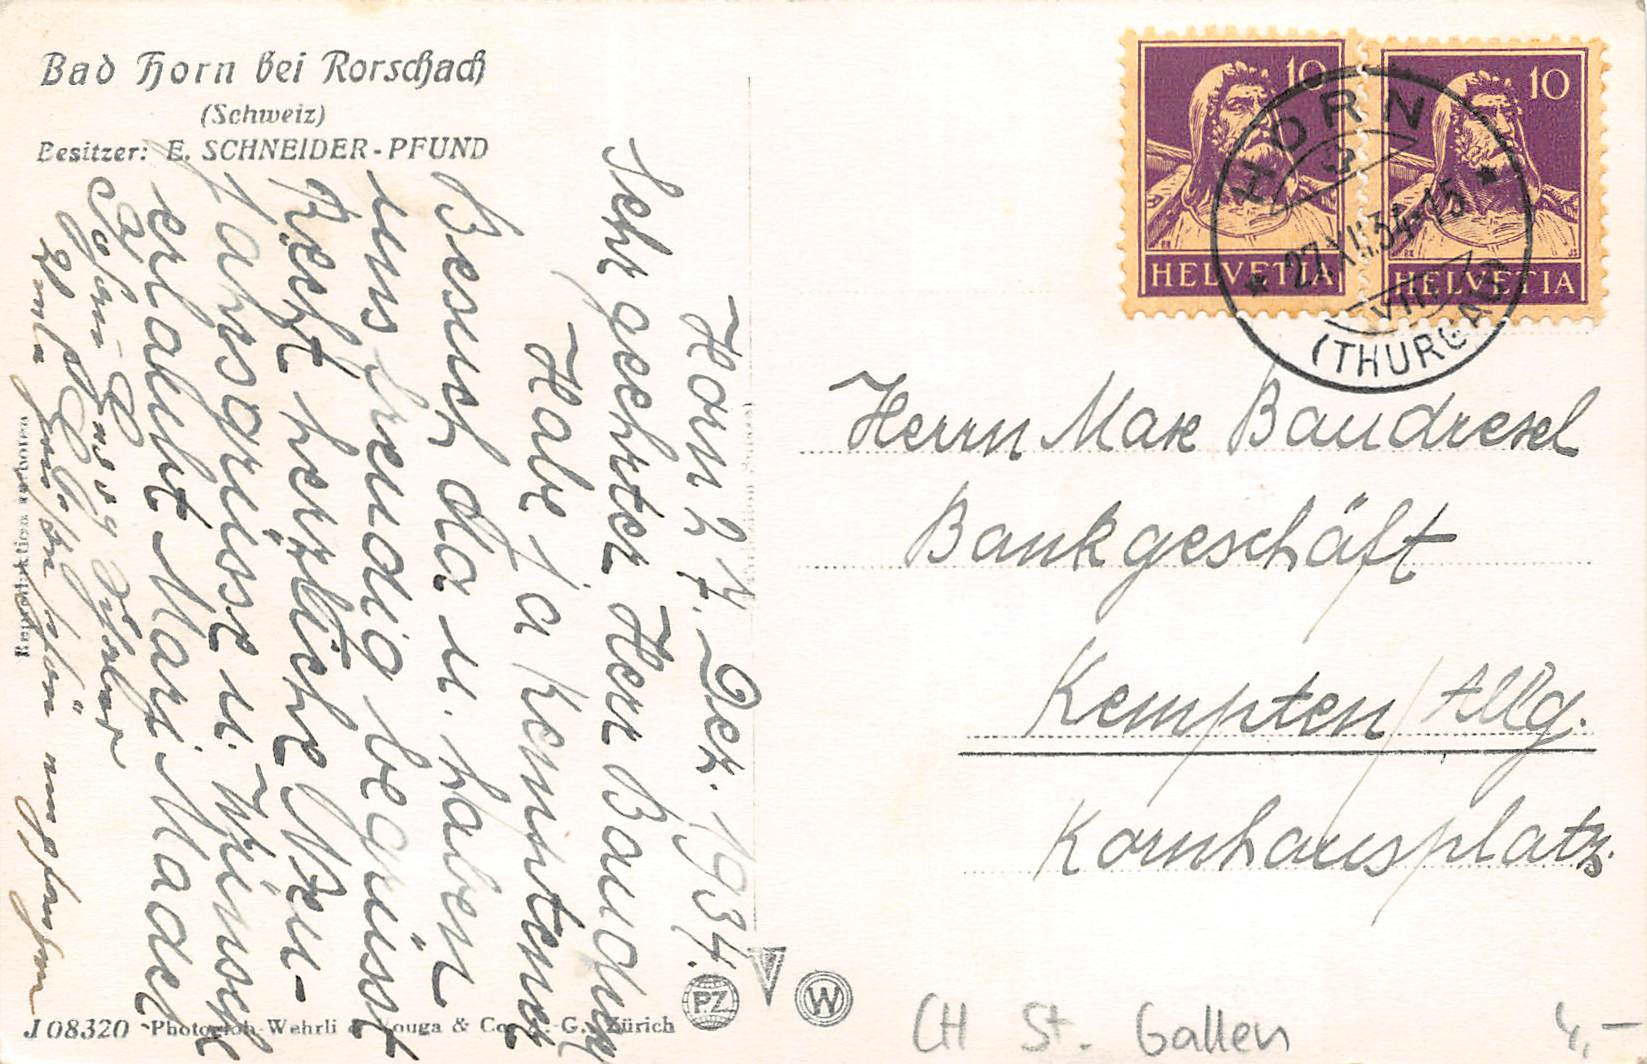 Bad Horn bei Rorschach
(Schweiz)
Besitzer: E. SCHNEIDER-PFUND
10
HELVETIA
10
HELVETIA
HORN
27.XII.34-15
VIII
(THURGAU)
Herrn Max Baudrexel
Bankgeschäft
Kempten/Allg.
Kornhausplatz.
Horn 27. Dez. 1934.
Sehr geehrter Herr Baudrexel
Habe ja Kenntener
Besuch da u. haben
uns freudig begrüsst
Recht herzliche Neu-
jahrsgrüsse u. Wünsche
erlaubt Mari Mader
Reproduktion verboten
J 08320 Photogloh-Wehrli & Vouga & Co. A.-G. Zürich
PZ
W
CH St. Gallen
4,-